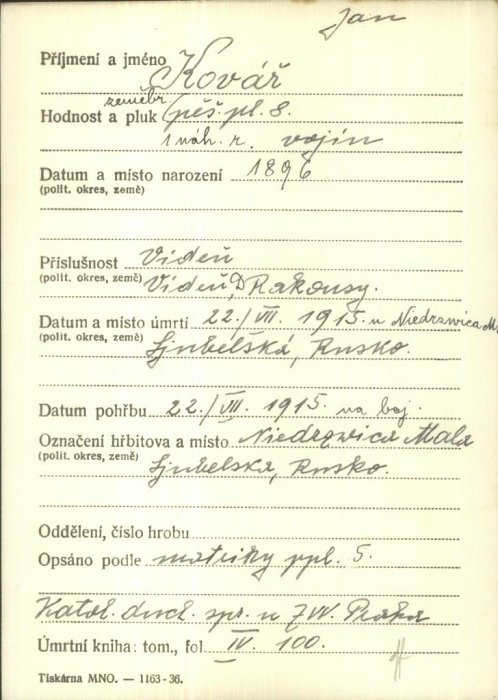 Jan
Příjmení a jméno Kovář
zeměbr.
Hodnost a pluk pěš. pl. 8.
1 náh. r. vojín
Datum a místo narození 1896
(polit. okres, země)
Příslušnost Videň
(polit. okres, země) Videň, D. Rakousy.
Datum a místo úmrtí 22./VII. 1915. u Niedrzwica M.
(polit. okres, země) Ljubelská, Rusko.
Datum pohřbu 22./VII. 1915. na boj.
Označení hřbitova a místo Niedrzwica Mala
(polit. okres, země) Ljubelska, Rusko.
Oddělení, číslo hrobu
Opsáno podle matriky ppl. 5.
Katol. duch. spr. u ZVV. Praha
Úmrtní kniha: tom., fol IV. 100.
Tiskárna MNO. — 1163-36.